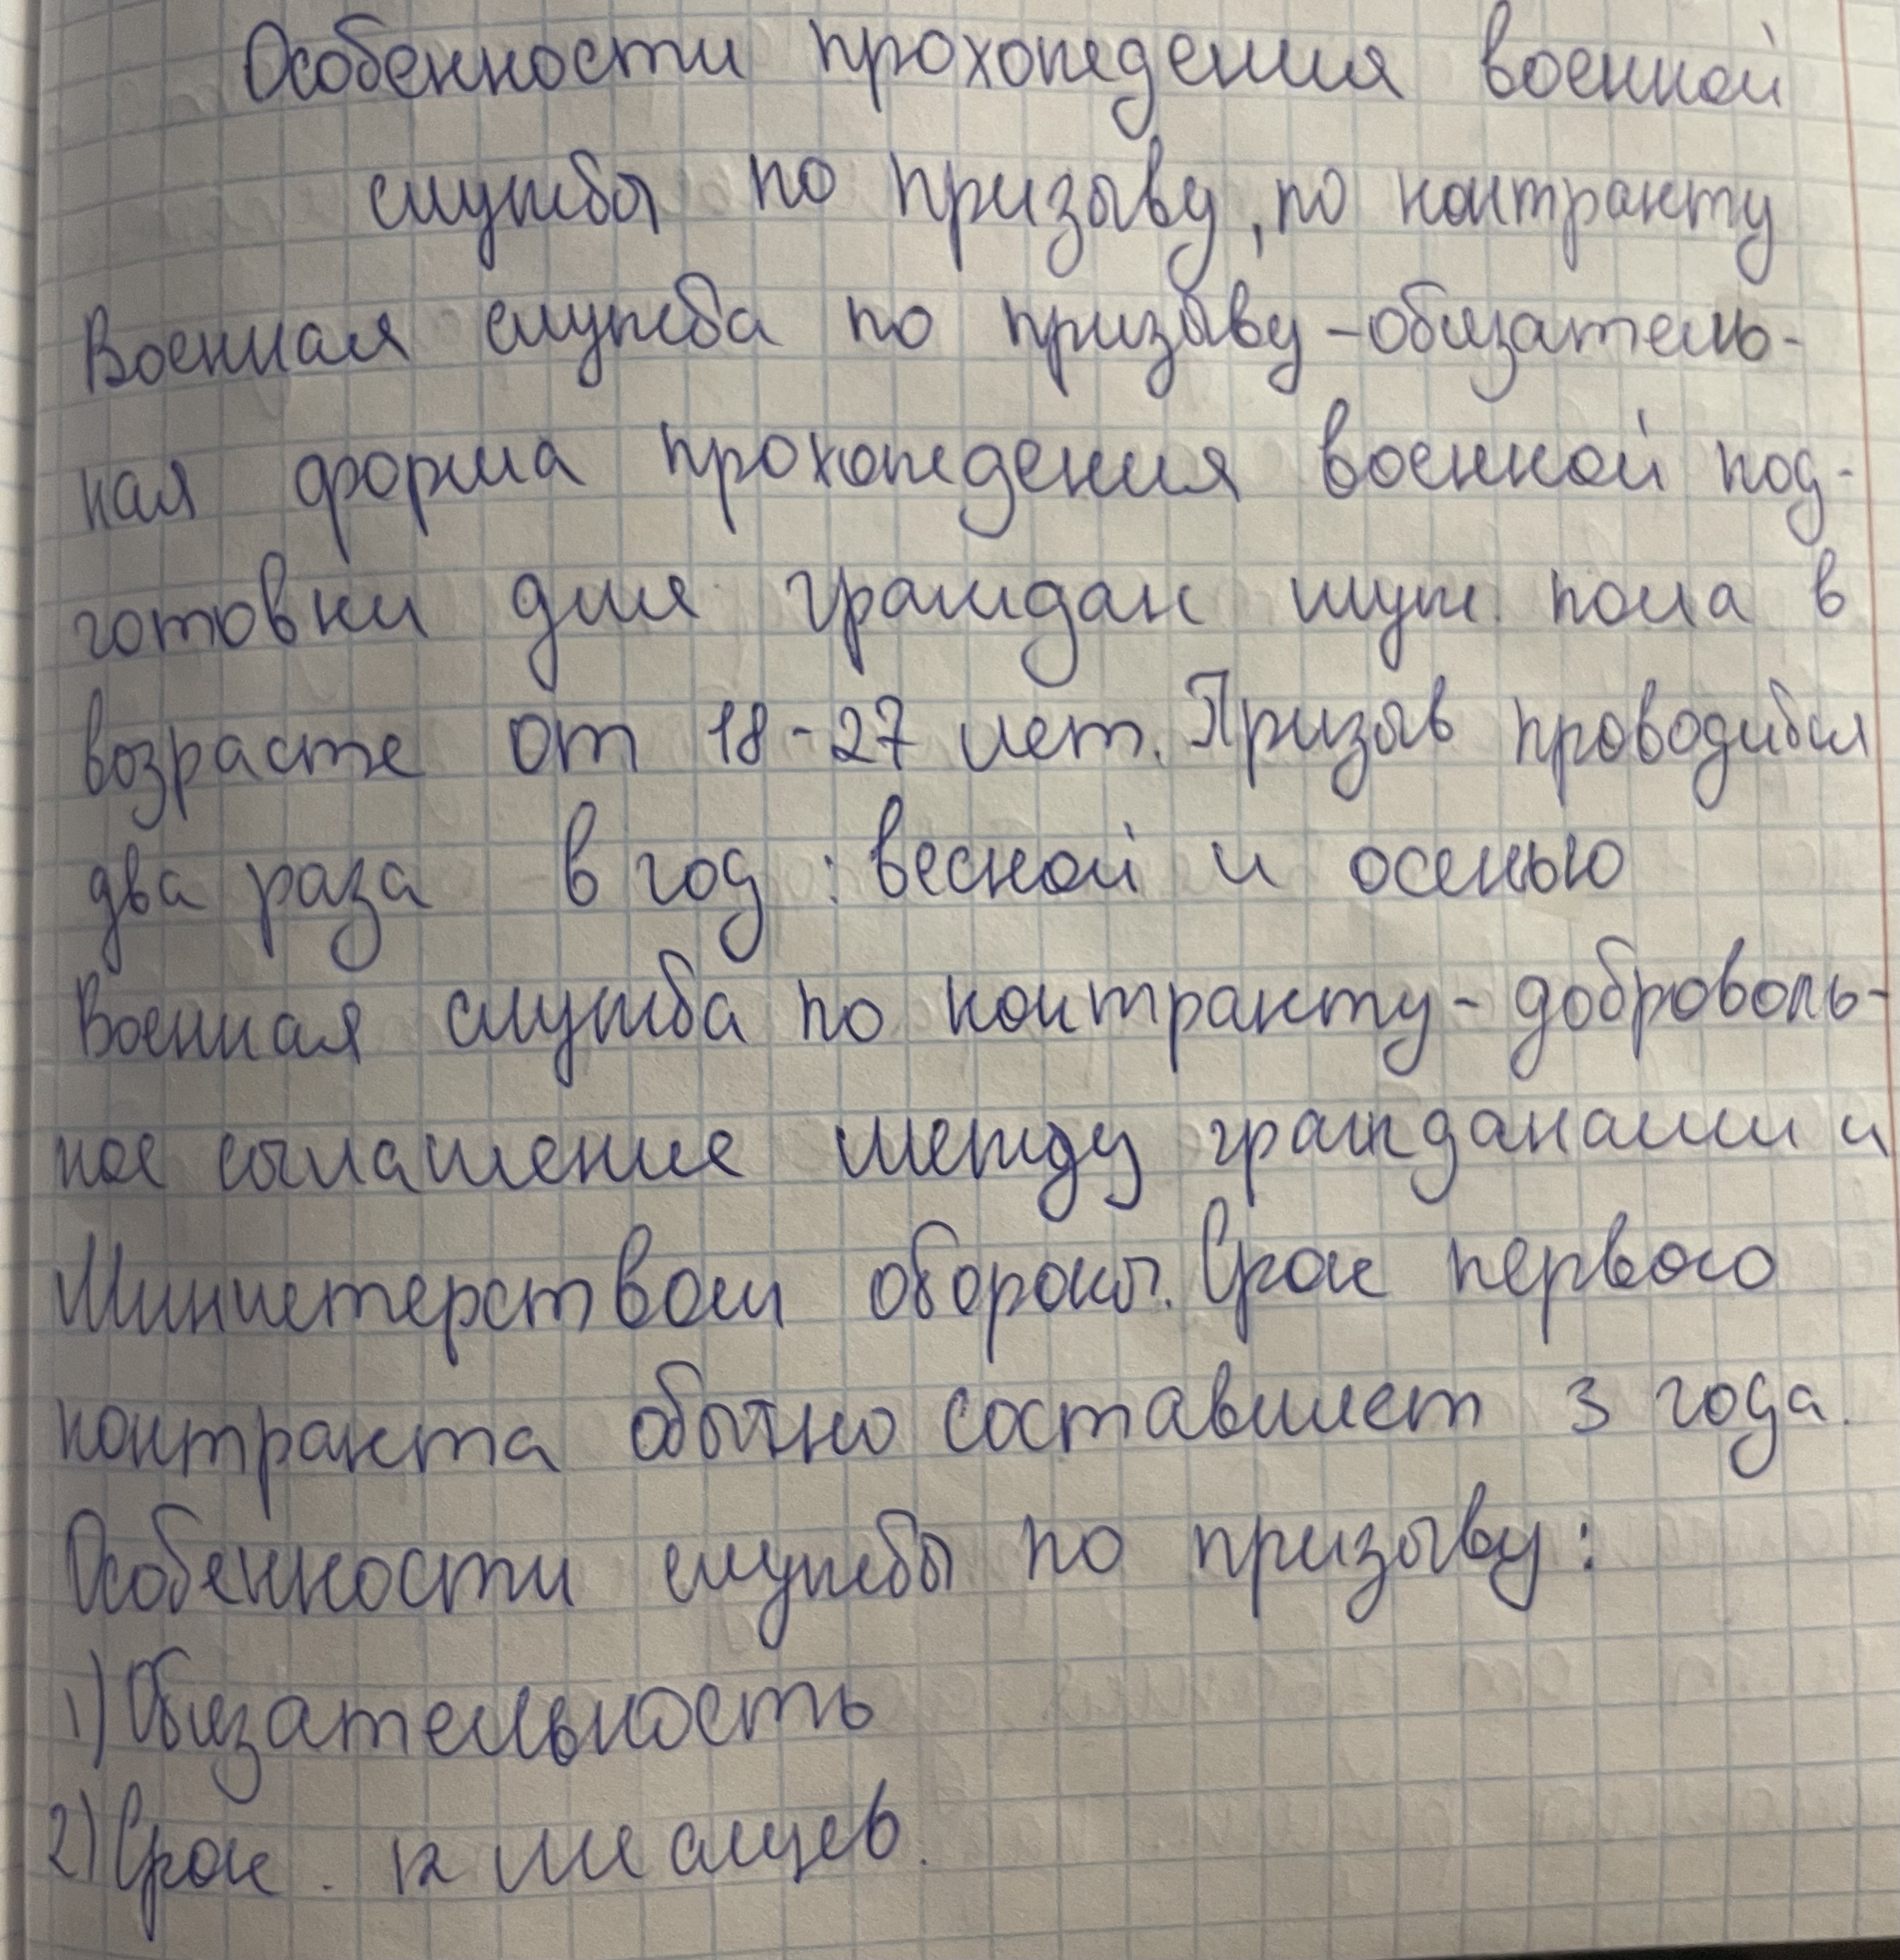 Особенности прохождения военной
службы по призыву, по контракту
Военная служба по призыву - обязатель-
ная форма прохождения военной под-
готовки для граждан муж. пола в
возрасте от 18-27 лет. Призыв проводился
два раза в год: весной и осенью
Военная служба по контракту - доброволь-
ное соглашение между гражданами и
Министерством обороны. Срок первого
контракта обычно составляет 3 года.
Особенности службы по призыву:
1) Обязательность
2) Срок. 12 месяцев.